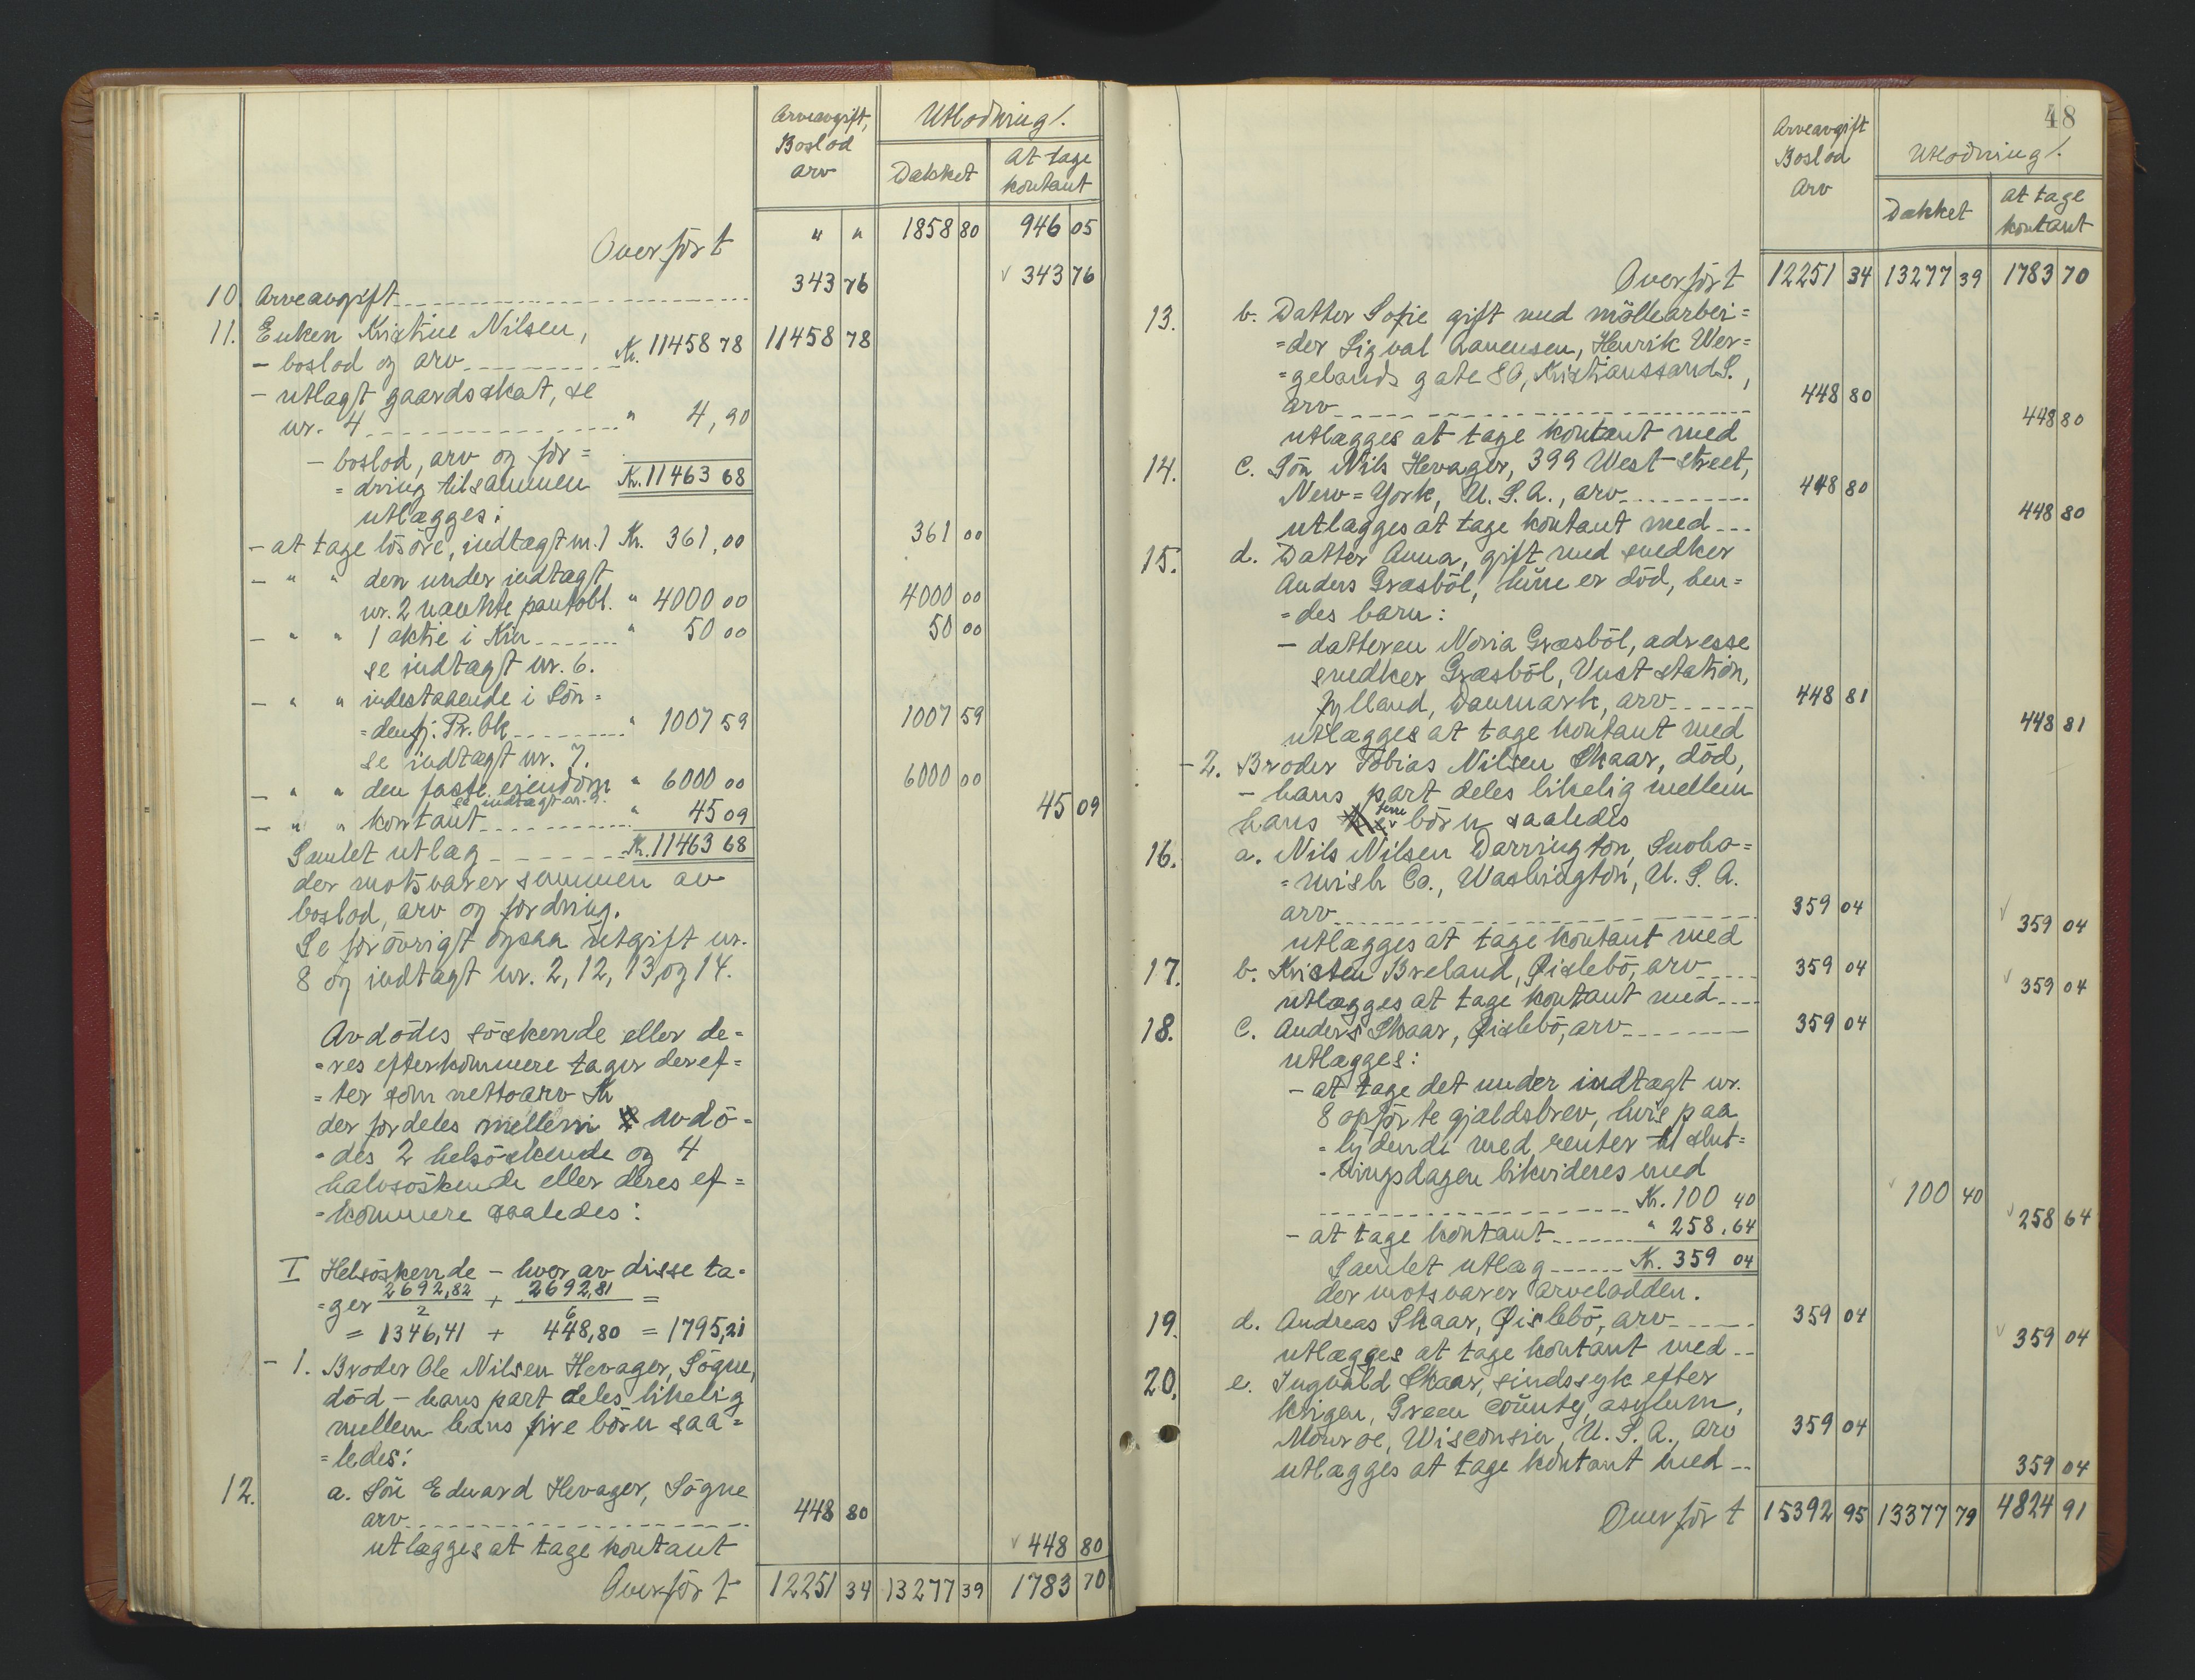 Arveavgift, Boslod arv
Utlodning!
Dækket
at tage kontant
Overført " " 1858 80 946 05
10. Arveavgift 343 76 √ 343 76
11. Enken Kristine Nilsen,
- boslod og arv Kr. 11458 78 11458 78
- utlagt gaardsskat, se
nr. 4 " 4,90
- boslod, arv og for=
=dring tilsammen Kr. 11463 68
utlægges:
- at tage lösöre, indtægt nr. 1 Kr. 361,00 361 00
- " " den under indtægt
nr. 2 nævnte pantobl. " 4000 00 4000 00
- " " 1 aktie i Kra " 50 00 50 00
se indtægt nr. 6.
- " " indestaaende i Sön=
=denfj. Pr. bk " 1007 59 1007 59
se indtægt nr. 7.
- " " den faste eiendom " 6000 00 6000 00
se indtægt nr. 9.
- " " kontant " 45 09 45 09
Samlet utlæg Kr. 11463 68
der motsvarer summen av
boslod, arv og fordring.
Se forövrigt ogsaa utgift nr.
8 og indtægt nr. 2, 12, 13, og 14.
Avdödes söskende eller de=
=res efterkommere tager deref=
=ter som nettoarv Kr
der fordeles mellem avdö=
=des 2 helsöskende og 4
halvsöskende eller deres ef=
=kommere saaledes:
I Helsöskende - hver av disse ta=
=ger 2692,82/2 + 2692,81/6 =
= 1346,41 + 448,80 = 1795,21
- 1. Broder Ole Nilsen Hevager, Sögne,
död - hans part deles likelig
mellem hans fire börn saa=
=ledes:
12. a. Sön Edvard Hevager, Sögne
arv 448 80
utlægges at tage kontant √ 448 80
Overført 12251 34 13277 39 1783 70
48
Arveavgift Boslod Arv
Utlodning!
Dækket
at tage kontant
Overført 12251 34 13277 39 1783 70
13. b. Datter Sofie gift med möllearbei=
=der Sigval Aanensen, Henrik Wer=
=gelands gate 80, Kristianssand S.,
arv 448 80
utlægges at tage kontant med 448 80
14. c. Sön Nils Hevager, 399 West street,
New=York, U. S. A., arv 448 80
utlægges at tage kontant med 448 80
15. d. Datter Anna, gift med snedker
Anders Græsböl, hun er död, hen=
=des barn:
- datteren Noria Græsböl, adresse
snedker Græsböl, Vust station,
Jylland, Danmark, arv 448 81
utlægges at tage kontant med 448 81
- 2. Broder Tobias Nilsen Skaar, död,
- hans part deles likelig mellem
hans fem börn saaledes
16. a. Nils Nilsen Darrington, Snoho=
=mish Co., Washington, U. S. A.
arv 359 04
utlægges at tage kontant med √ 359 04
17. b. Kristen Breland, Øislebö, arv 359 04
utlægges at tage kontant med √ 359 04
18. c. Anders Skaar, Øislebö, arv 359 04
utlægges:
- at tage det under indtægt nr.
8 opförte gjældsbrev, hvis paa
=lydende med renter til slut=
=ningsdagen likvideres med
Kr. 100 40 √ 100 40
- at tage kontant " 258.64 √ 258 64
Samlet utlæg Kr. 359 04
der motsvarer arvelodden.
19. d. Andreas Skaar, Øislebö, arv 359 04
utlægges at tage kontant med √ 359 04
20. e. Ingvald Skaar, sindssyk efter
krigen, Green county asylum,
Monroe, Wisconsin, U. S. A., arv 359 04
utlægges at tage kontant med 359 04
Overført 15392 95 13377 79 4824 91